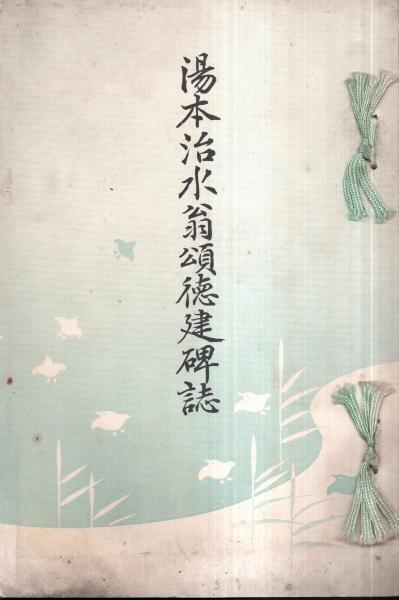 湯本治水翁頌徳建碑誌